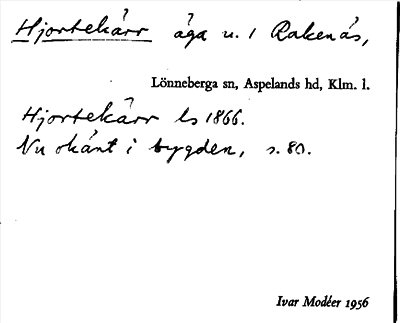 Hjortekärr äga u. / Rakenäs,
Lönneberga sn, Aspelands hd, Klm. l.
Hjortekärr ls 1866.
Nu okänt i bygden, s. 80.
Ivar Modéer 1956